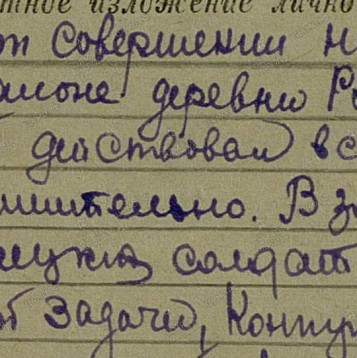 тное изложение лично
совершении н
районе деревни Р
действовал в с
шительно. В з
солдат
задачи, Конту